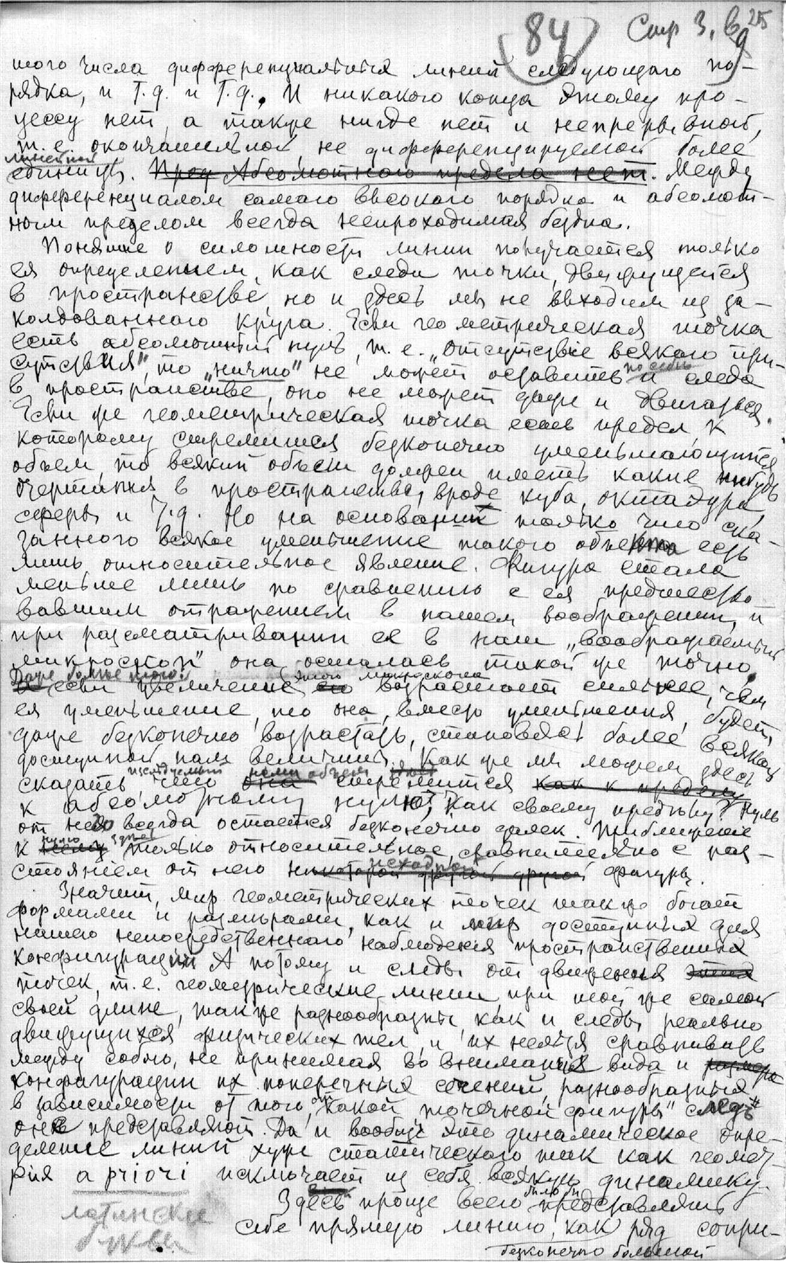 84 Стр 3, в 25
9
шого числа дифференциалится линий следующего по-
рядка, и т.д. и т.д. И никакого конца этому про-
цессу нет, а также нигде нет и непрерывной,
т.е. окончательной, не дифференцируемой более
линейной
единицы. Пред Абсолютного предела нет. Между
диференциалом самаго высокого порядка и абсолют-
ным пределом всегда непроходимая бездна.
Понятие о сплошности линии получается только
ея определеньем, как следа точки, движущейся
в пространстве, но и здесь мы не выходим из за-
колдованного круга. Если геометрическая точка
есть абсолютный нуль, т.е. „отсутствие всякого при-
сутствия", то „ничто" не может оставить по себе и следа
в пространстве, оно не может даже и двигаться.
Если же геометрическая точка есть предел к
которому стремится безконечно уменьшающийся
объем, то всякий объем должен иметь какие нибудь
очертания в пространстве, вроде куба, октаэдра,
сферы и т.д. Но на основании только что ска-
занного всякое уменьшение такого объекта есть
лишь относительное явление. Фигура стала
меньше лишь по сравнению с ея предшество-
вавшим отражением в нашем воображении, и
при разсматривании ея в наш „воображаемый
микроскоп" она осталась такой же точно.
Даже больше того:
этого микроскопа
если увеличение его возрастает сильнее, чем
ея уменьшение, то она, вместо уменьшения, будет
даже безконечно возрастать, становясь более всякой
доступной нам величины. Как же мы можем здесь
сказать, что она исследуемый нами объем стремится как к пределу
к абсолютному нулю, как своему пределу? Нуль
от нея всегда остается безконечно далек. Приближение
к нулю здесь только относительное сравнительно с раз-
стоянием от него исходной фигуры.
Значит, мир геометрических точек также богат
формами и размерами, как и мир доступных для
нашего непосредственного наблюдения пространственных
конфигураций. А потому и следы от движения этих
точек, т.е. геометрические линии при той же самой
своей длине, также разнообразны как и следы реально
движущихся физических тел, и их нельзя сравнивать
между собою, не принимая во внимание вида и размера
конфигурации их поперечных сечений, разнообразных
в зависимости от того, от какой „точечной фигуры" след
оне представляют. Да и вообще это динамическое опре-
деление линий хуже статического так как геомет-
рия a priori исключает из себя всякую динамику.
Здесь проще всего было бы представлять
латинские
буквы
себе прямую линию, как ряд сопри-
безконечно большой